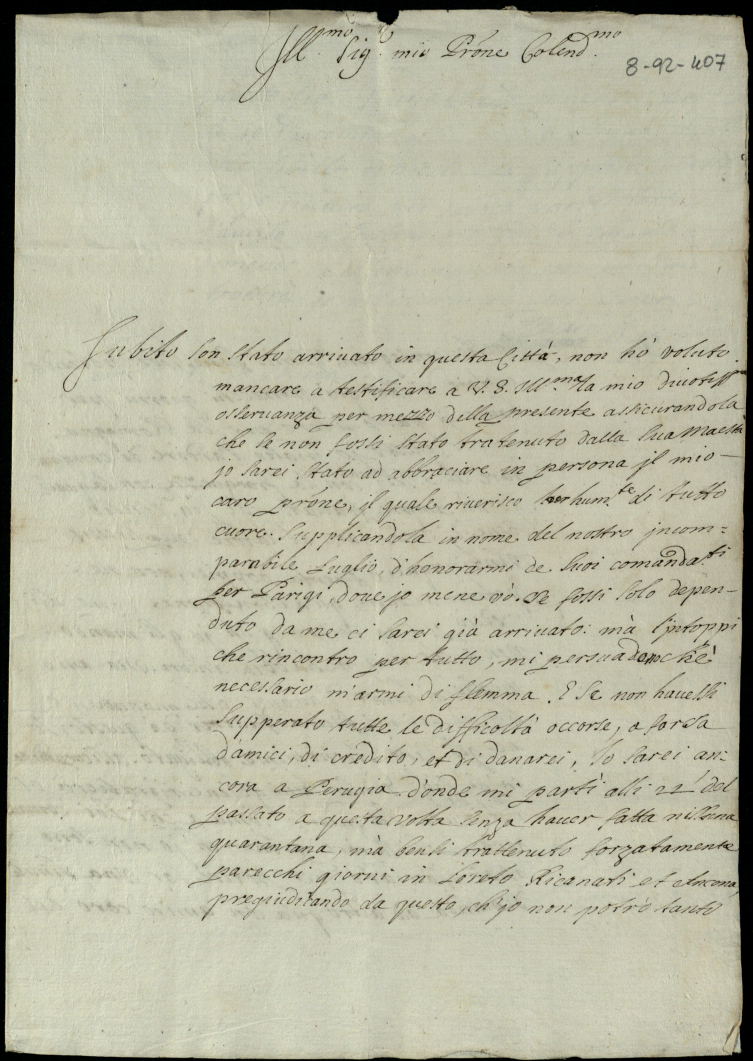 Ill.mo Sig.r mio Prōne Colend.mo
8-92-407
Subito son stato arrivato in questa Città, non hò voluto
mancare a testificare a V. S. Ill.ma la mio divotiss.
osservanza per mezzo della presente assicurandola
che se non fossi stato tratenuto dalla sua Maestà
jo sarei stato ad abbraciare in persona jl mio
caro prōne, jl quale riverisco hum.te di tutto
cuore. Supplicandola in nome del nostro jncom=
parabile Luglio, d'honorarmi de suoi comanda.ti
per Parigi, dove jo mene vò. Se fossi solo depen-
duto da me, ci sarei già arrivato: mà l'jntoppi
che rincontro per tutto, mi persuadono ch'è
necessario m'armi di flemma. E se non havessi
supperato tutte le difficoltà occorse, a forza
d'amici, di credito, et di danarei, Io sarei an=
cora a Perugia d'onde mi partì alli 22 del
passato a questa volta senza haver fatta nissuna
quarantana, mà bensi trattenuto forzatamente
parecchi giorni in Loreto Ricanati et Ancona,
pregiuditando da questo, ch'jo non potrò tanto